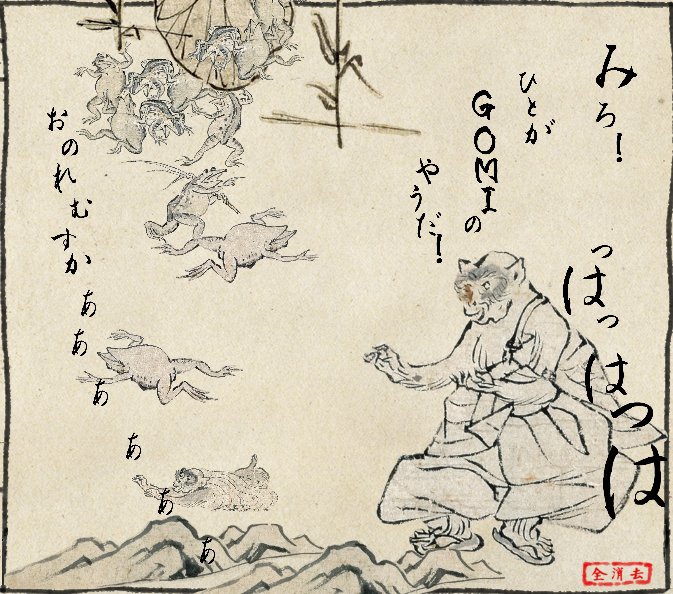 みろ!
ひとが
GOMIの
やうだ!
っはっはっは
おのれむすか
ああああああ
全消去